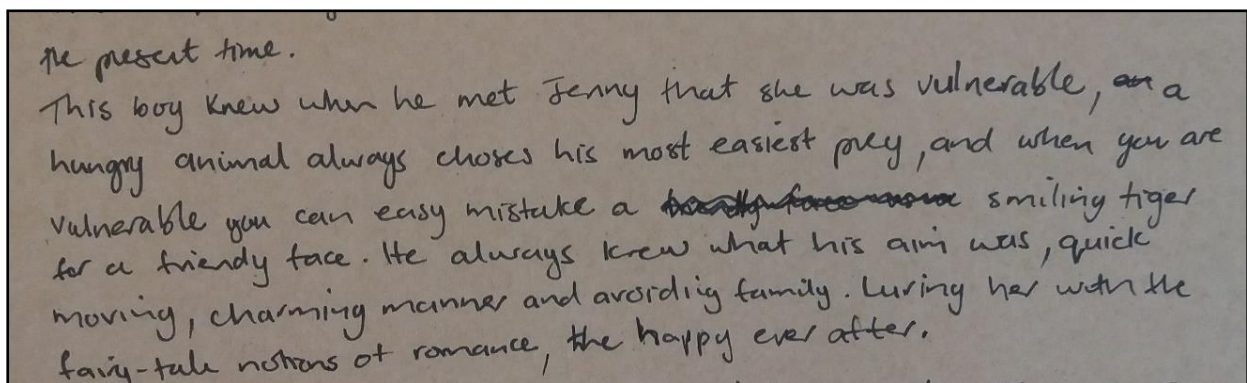 the present time.
This boy knew when he met Jenny that she was vulnerable, a
hungry animal always choses his most easiest prey, and when you are
vulnerable you can easy mistake a smiling tiger
for a friendly face. He always knew what his aim was, quick
moving, charming manner and avoiding family. Luring her with the
fairy-tale notions of romance, the happy ever after.